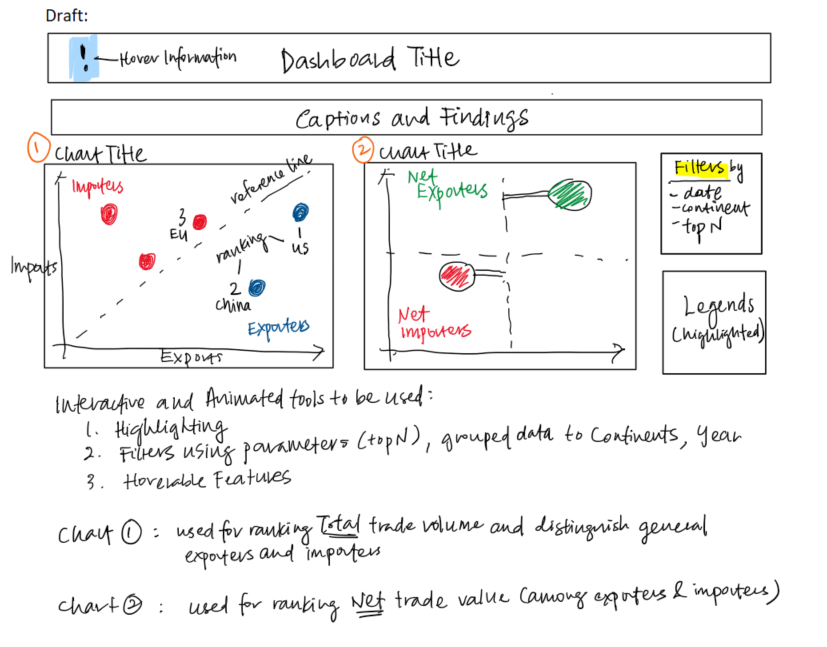 Draft:
! Hover Information Dashboard Title
Captions and Findings
1 Chart Title
Importers
reference line
3
EU
ranking
1
US
2
China
Exporters
Imports
Exports
2 Chart Title
Net
Exporters
Net
Importers
Filters by
- date
- continent
- top N
Legends
(highlighted)
Interactive and Animated tools to be used:
1. Highlighting
2. Filters using parameters (top N), grouped data to Continents, Year
3. Hoverable Features
Chart 1 : used for ranking Total trade volume and distinguish general
exporters and importers
Chart 2 : used for ranking Net trade value (among exporters & importers)